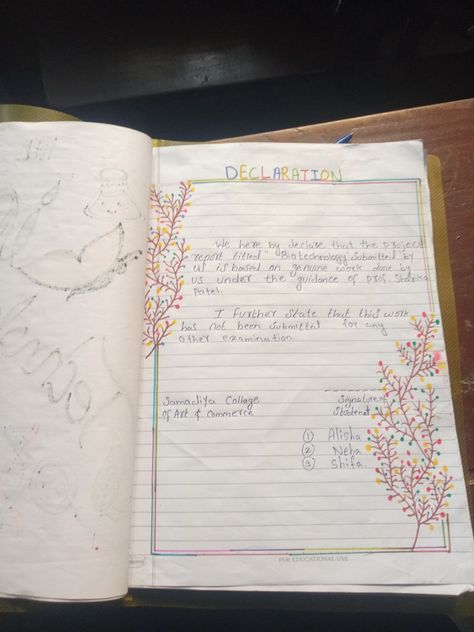 DECLARATION
We here by declare that the project
report titled "Biotechnology submitted by
us is based on genuine work done by
us under the guidance of prof.
Patel.
I Further state that this work
has not been submitted for any
other examination.
Samadiya Collage
of Art & Commerce
Signature of
Student
① Alisha
② Neha
③ Shifa.
FOR EDUCATIONAL USE